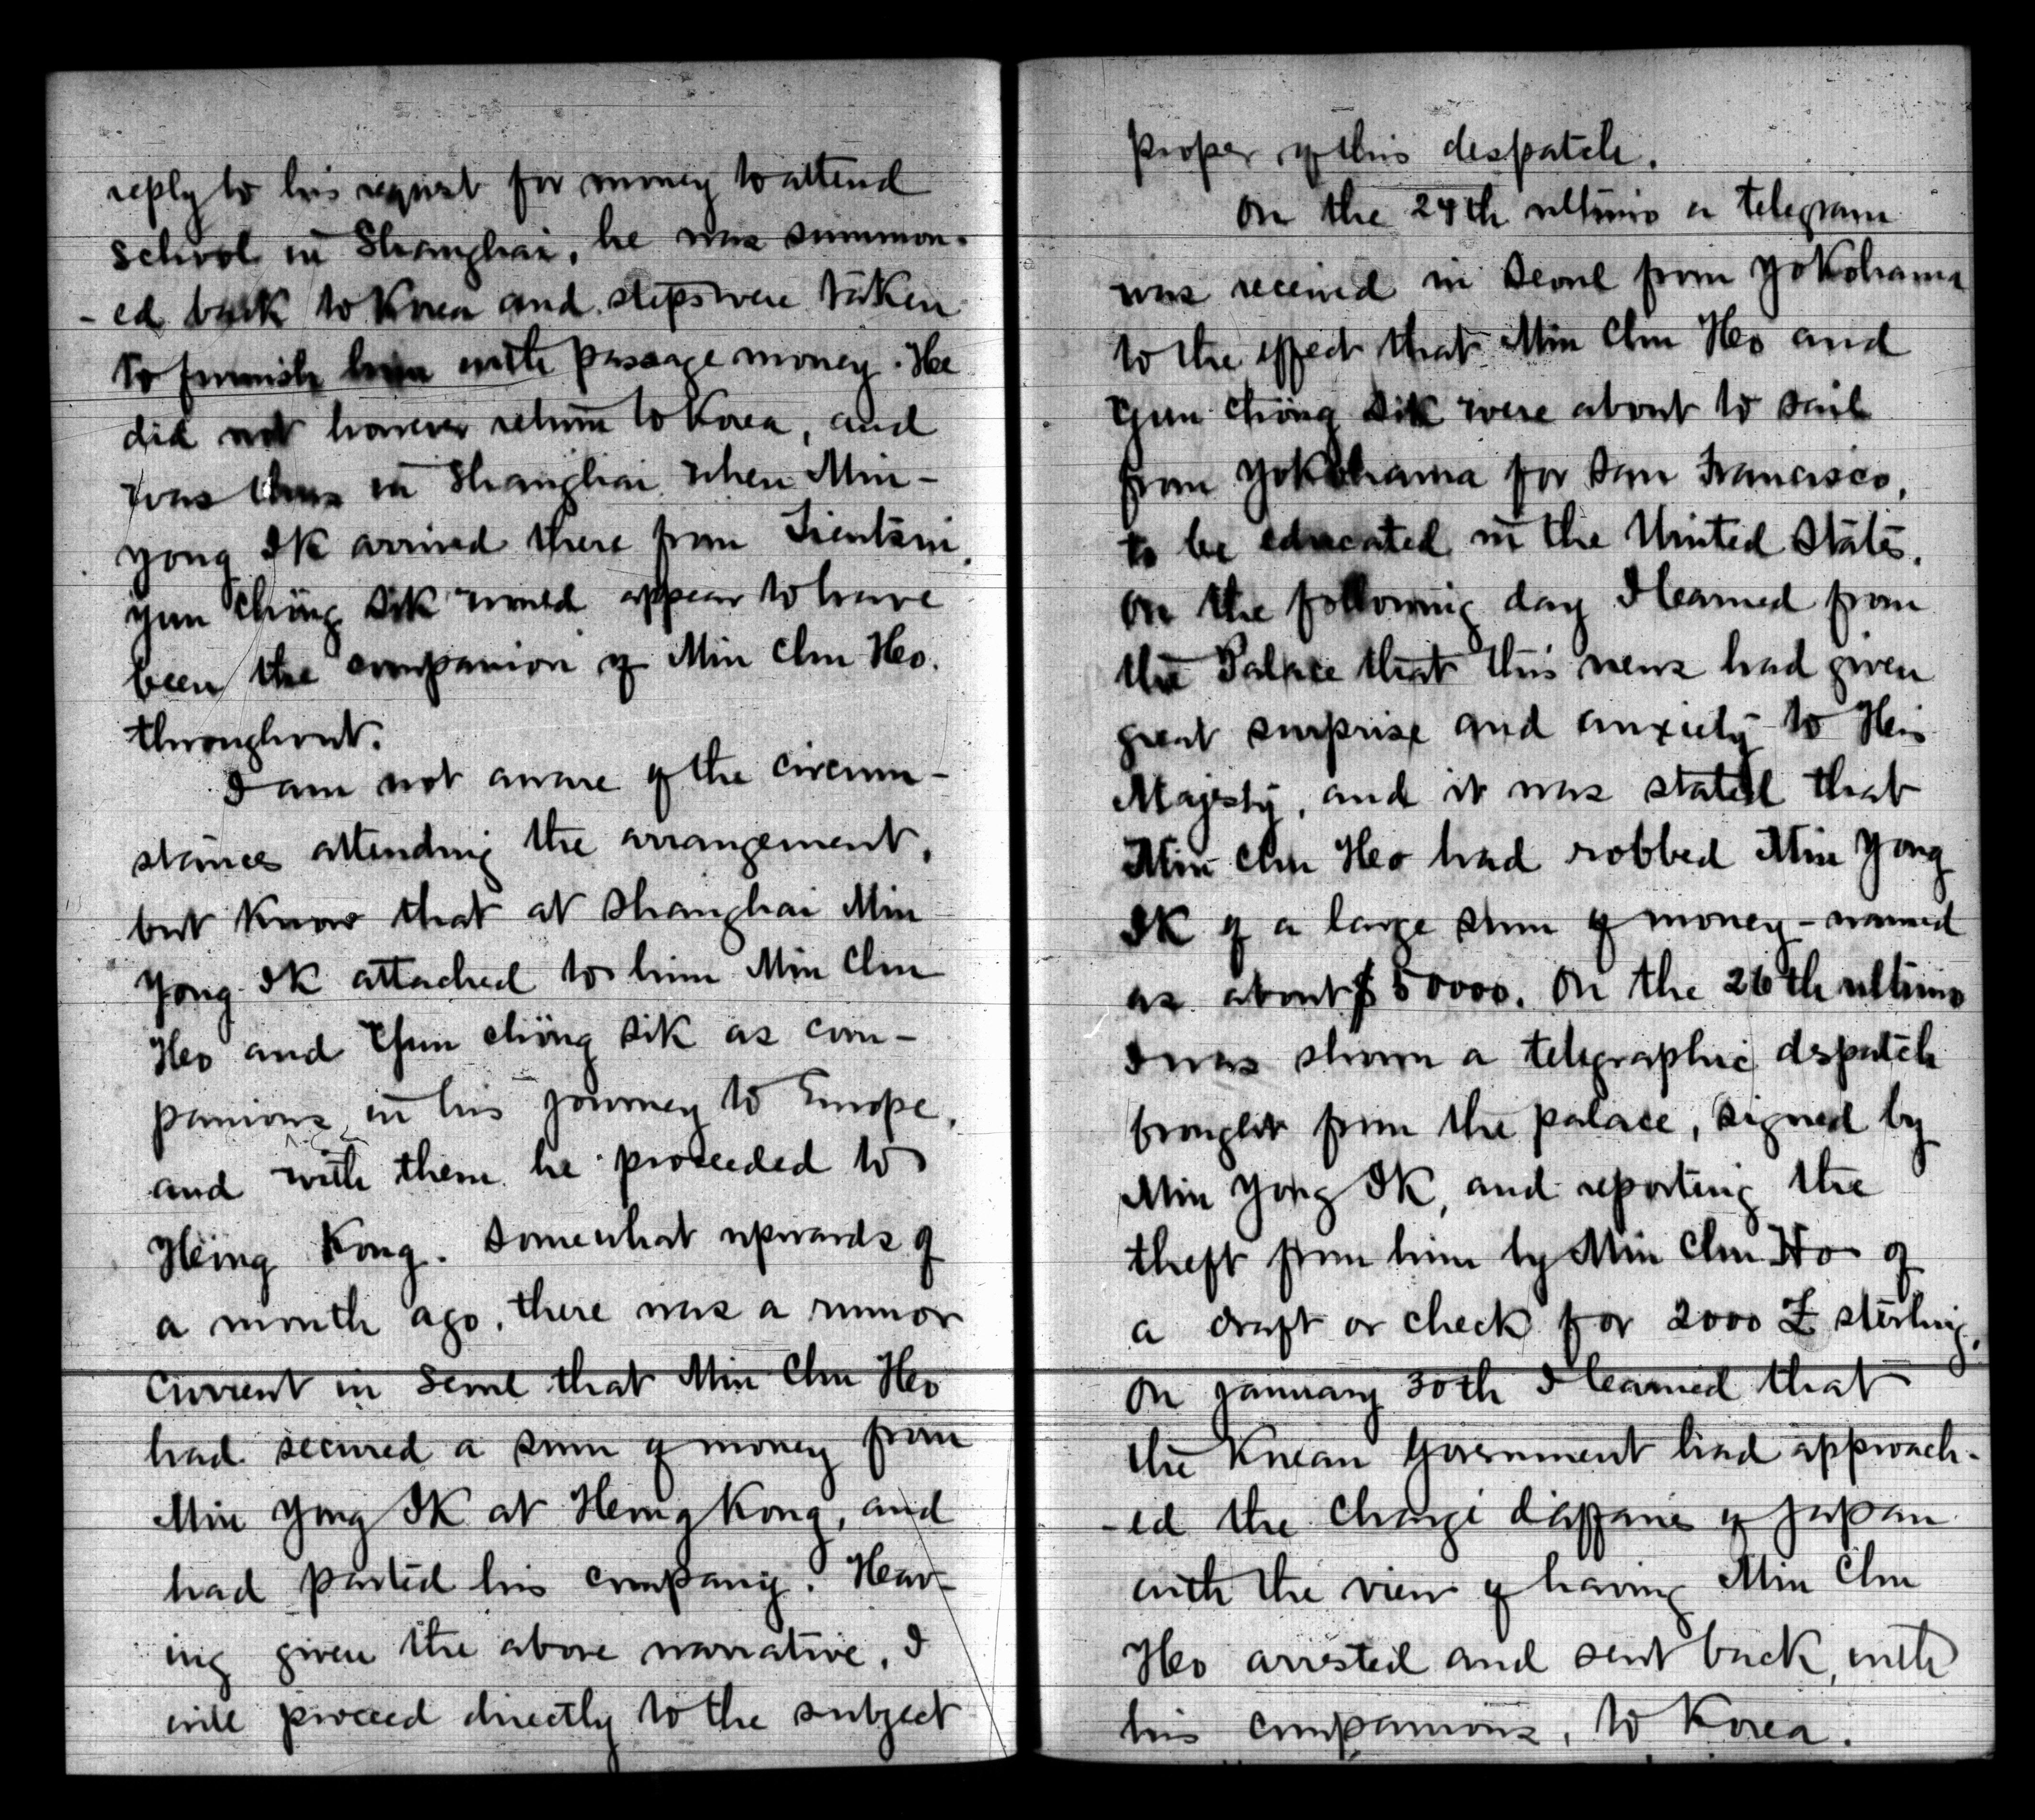 reply to his request for money to attend
school in Shanghai, he was summon-
-ed back to Korea and steps were taken
to furnish him with passage money. He
did not however return to Korea, and
was thus in Shanghai when Min-
yong Ik arrived there from Tientsin.
Yun Chöng Sik would appear to have
been the companion of Min Chu Ho.
throughout.
I am not aware of the circum-
stances attending the arrangement,
but know that at Shanghai Min
Yong Ik attached to him Min Chu
Ho and Yun Chöng Sik as com-
panions in his journey to Europe,
and with them he proceeded to
Hong Kong. Somewhat upwards of
a month ago, there was a rumor
current in Seoul that Min Chu Ho
had secured a sum of money from
Min Yong Ik at Hong Kong, and
had parted his company. Hav-
ing given the above narrative, I
will proceed directly to the subject
proper of this despatch.
On the 24th ultimo a telegram
was received in Seoul from Yokohama
to the effect that Min Chu Ho and
Yun Chöng Sik were about to sail
from Yokohama for San Francisco,
to be educated in the United States.
On the following day I learned from
the Palace that this news had given
great surprise and anxiety to His
Majesty, and it was stated that
Min Chu Ho had robbed Min Yong
Ik of a large sum of money - named
as about $50000. On the 26th ultimo
I was shown a telegraphic despatch
brought from the palace, signed by
Min Yong Ik, and reporting the
theft from him by Min Chu Ho of
a draft or check for 2000 £ sterling.
On January 30th I learned that
the Korean Government had approach-
-ed the Chargé d'affaires of Japan
with the view of having Min Chu
Ho arrested and sent back, with
his companions, to Korea.